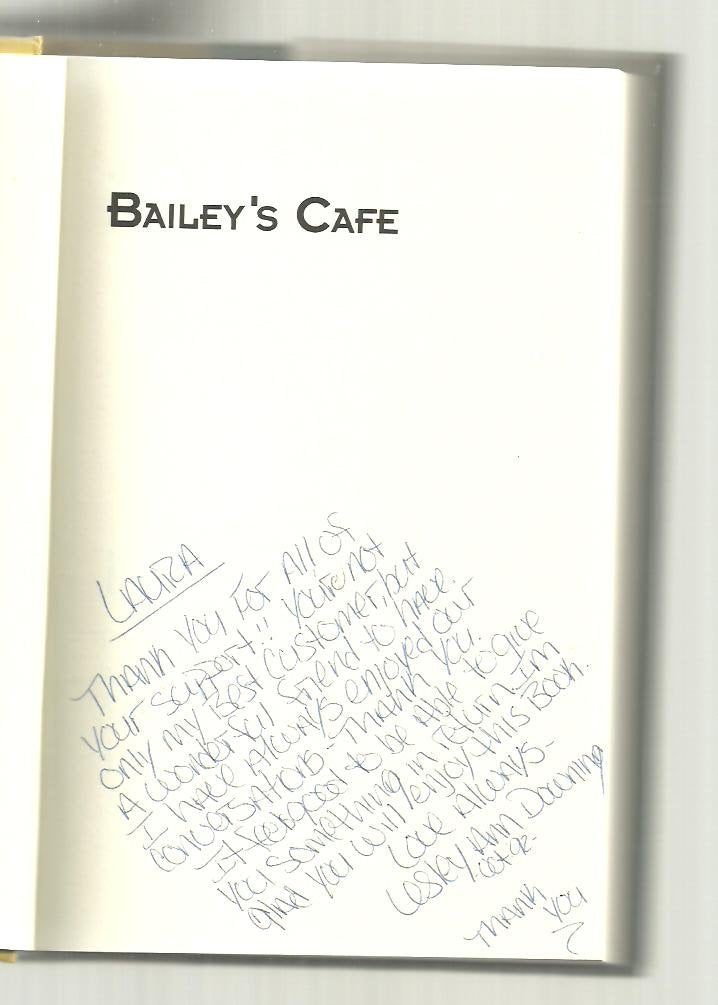 BAILEY'S CAFE
LAURA
THANK YOU FOR All OF
YOUR SUPPORT!! YOU'RE NOT
ONLY MY BEST CUSTOMER, but
A WONDERFUL FRIEND TO HAVE.
I HAVE ALWAYS ENJOYED OUR
CONVERSATIONS - THANK YOU.
It feels good to be Able to give
YOU SOMETHING in return. I'm
glad YOU will enjoy this BOOK.
LOVE Always-
Lesley Ann Downing
THANK
YOU